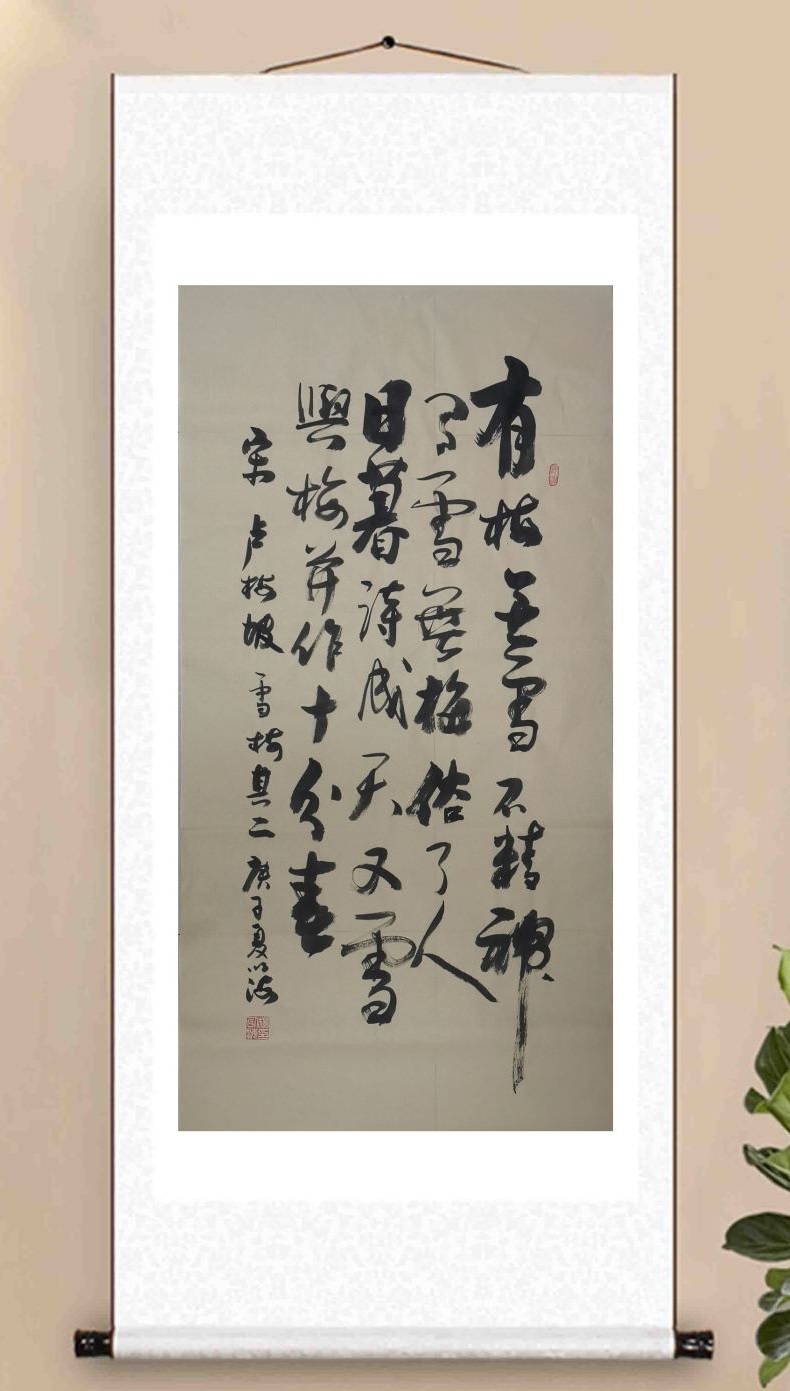 有梅無雪不精神
有雪無梅俗了人
日暮詩成天又雪
與梅并作十分春
宋 卢梅坡 雪梅其二 庚子夏 以海